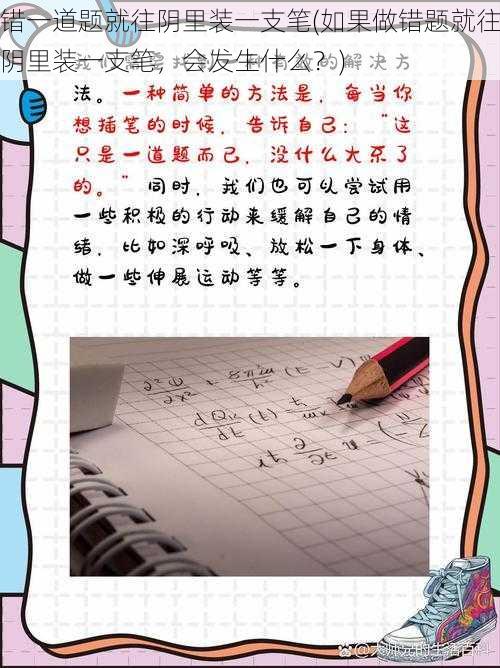 错一道题就往阴里装一支笔(如果做错题就往
阴里装一支笔，会发生什么？)
的解决方
法。一种简单的方法是，每当你
想插笔的时候，告诉自己：“这
只是一道题而已，没什么大不了
的。”同时，我们也可以尝试用
一些积极的行动来缓解自己的情
绪，比如深呼吸、放松一下身体、
做一些伸展运动等等。
@大师兄的生活百科